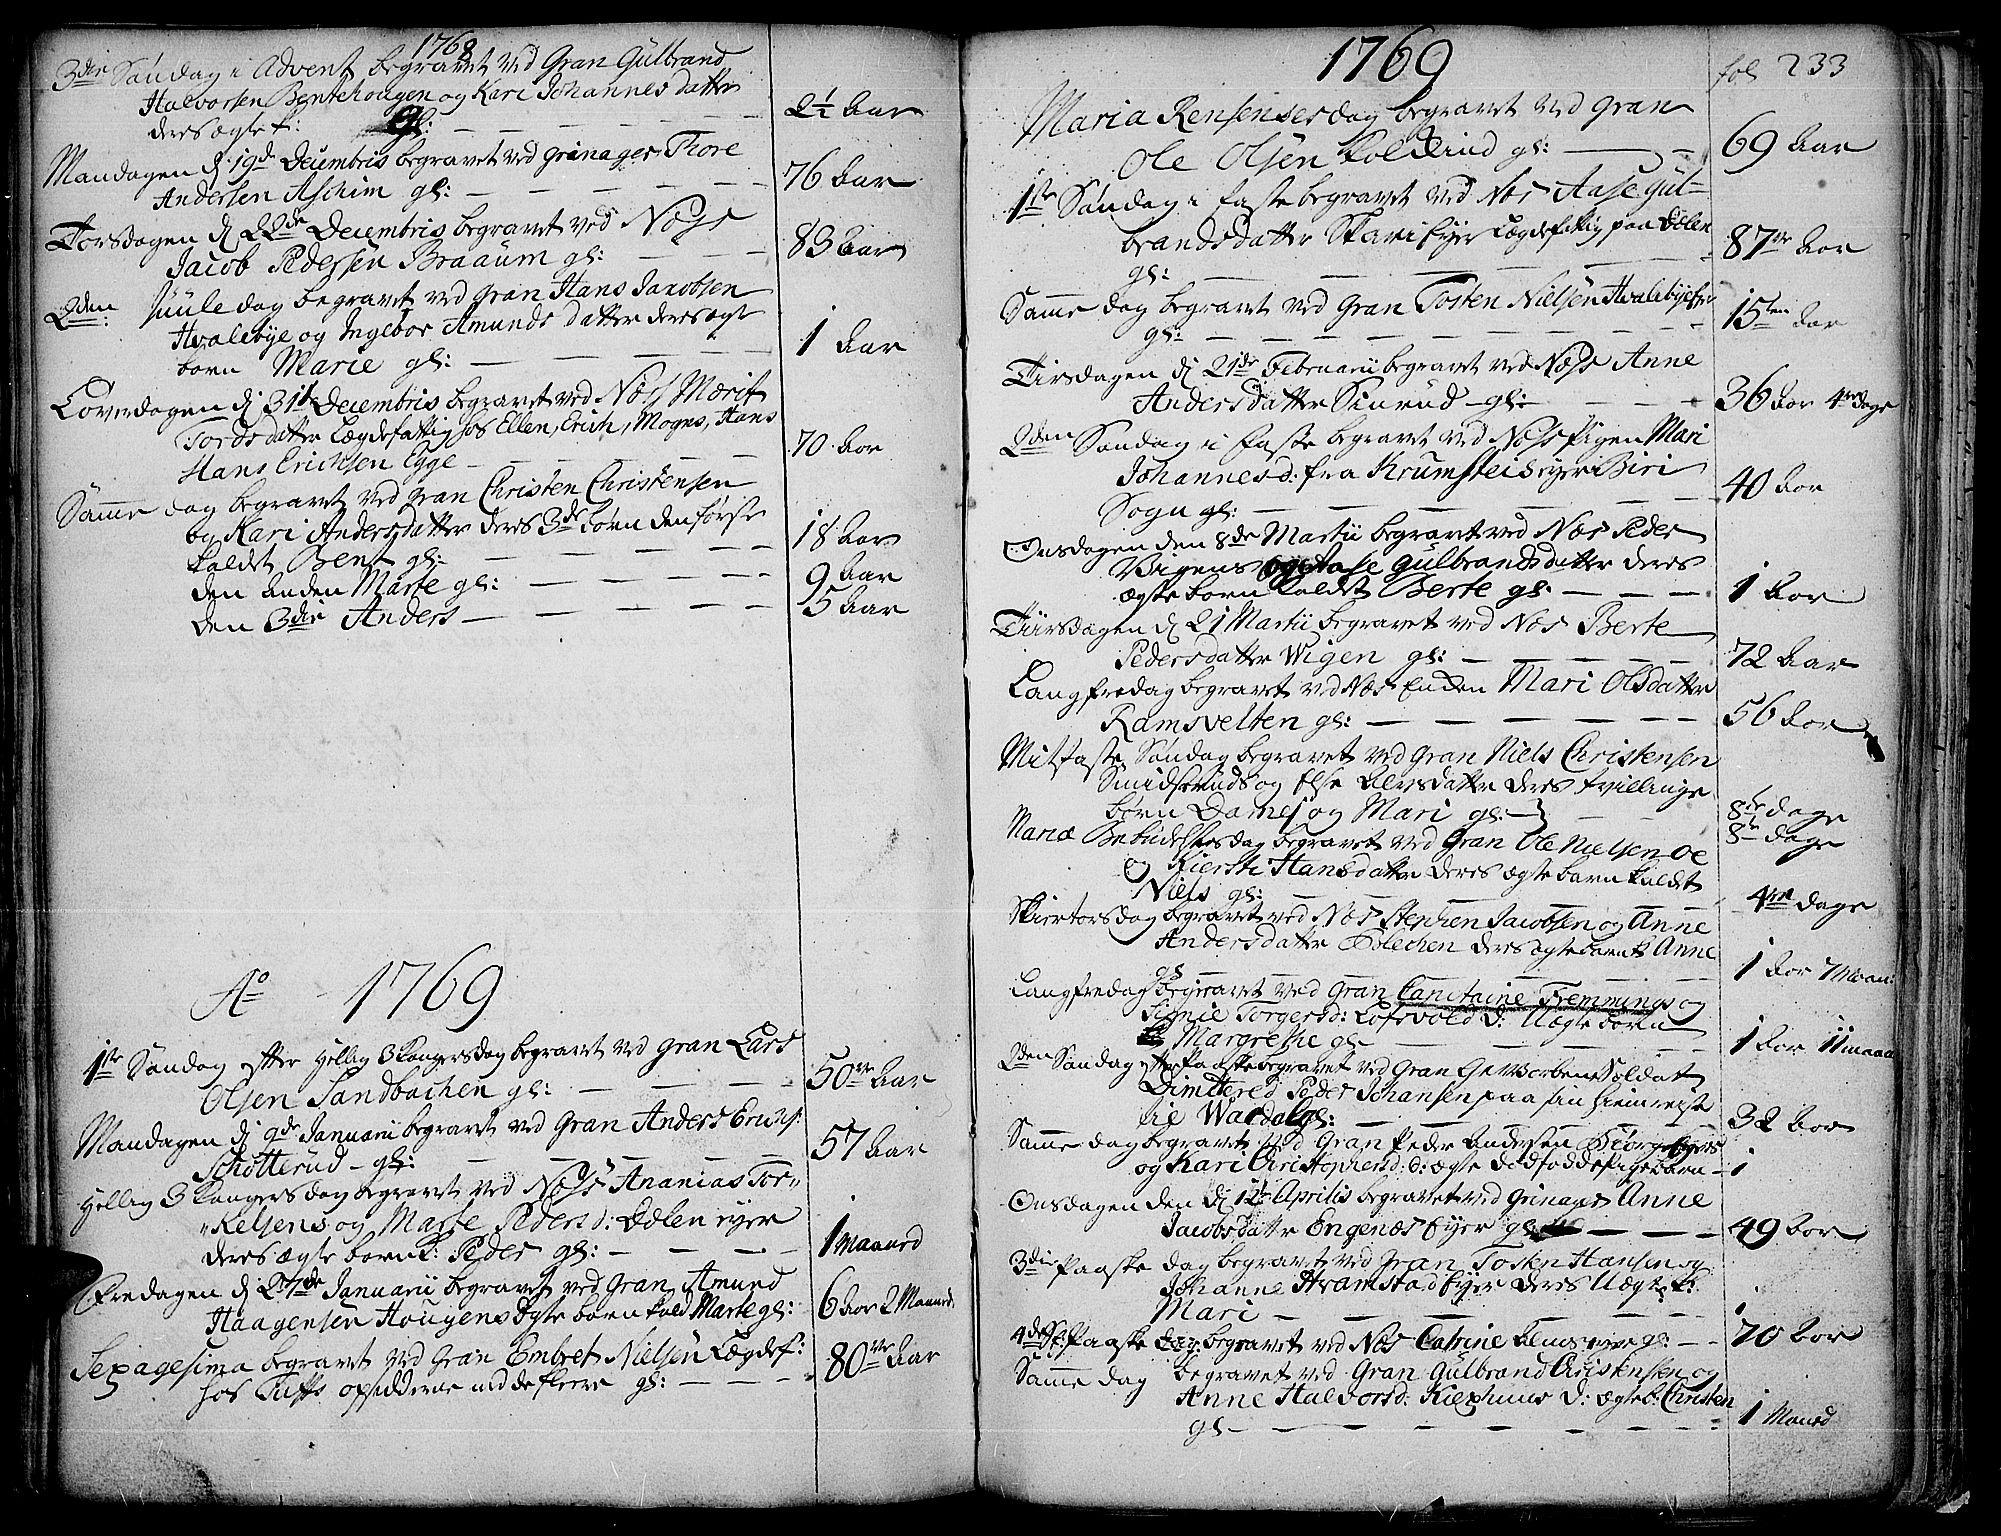 1768
3die Søndag i Advent begravet ved Gran Gulbrand
Halvorsen Bentehougen og Kari Johannes datter
deres ægte k: gl: — 2½ Aar
Mandagen d: 19de Decembris begravet ved Grinager Thore
Andersen Aschim gl: — 76 Aar
Torsdagen d: 22de Decembris begravet ved Næss
Jacob Pedersen Braaum gl: — 83 Aar
2den Juule dag begravet ved Gran Hans Jacobsen
Hvalebye og Ingebor Amunds datter deres ægte
barn Marie gl: — 1 Aar
Løverdagen d: 31te Decembris begravet ved Næss Mærit
Tordsdatter Lægdefattig hos Ellen, Erich, Mogns, Hans
Hans Erichsen Egge — 70 Aar
Samme dag begravet ved Gran Christen Christensen
og Kari Andersdatter deres 3de børn den første
kaldet Bent gl: — 18 Aar
den anden Marte gl: — 9 Aar
den 3die Anders — 5 Aar
Ao 1769
1ste Søndag efter Hellig 3 Kongersdag begravet ved Gran Lars
Olsen Sandbachen gl: — 50 Aar
Mandagen d: 9de Januarii begravet ved Gran Anders Erichs:
Schötterud gl: — 57 Aar
Hellig 3 Kongersdag begravet ved Næss Ananias Tor-
kelsens og Marte Pedersd: Dølen ejer
deres ægte barn k: Peder gl: — 1 Maaned
Fredagen d: 27de Januarii begravet ved Gran Amund
Haagensen Hougens ægte barn kald Marte gl: 6 Aar 2 Maaned
Sexagesima begravet ved Gran Embret Nielsen Lægdef:
hos Tuffs opsidderne med de fleere gl: — 80 Aar
1769 fol 233
Maria Rensensesdag begravet ved Gran
Ole Olsen Koldkind gl: — 69 Aar
1ste Søndag i Faste begravet ved Næs Aase Gul-
brandsdatter Skarisejer Lægdefattig paa Dølen
gl: — 87 Aar
Samme dag begravet ved Gran Tosten Nielsen Hvalebyeejer
gl: — 15ten Aar
Tirsdagen d: 21de Februarii begravet ved Næss Anne
Andersdatter Sinrud gl: — 36 Aar 4re dage
2den Søndag i Faste begravet ved Næss Pigen Mari
Johannesd: fra Krumsteidsejer Biri
Sogn gl: — 40 Aar
Onsdagen den 8de Martii begravet ved Næs Peder
Vigens og Aase Gulbrandsdatter deres
ægte barn kaldet Berte gl: — 1 Aar
Tiirsdagen d: 21 Martii begravet ved Næs Berte
Pedersdatter Wigen gl: — 72 Aar
Langfredag begravet ved Næs Enken Mari Olsdatter
Ramsvelten gl: — 56 Aar
Mitfaste Søndag begravet ved Gran Niels Christensen
Smidsruds og Else Larsdatter deres tvillinge
børn Daniel og Mari gl: — 8te dage
8te dage
Mariæ Bebudelsesdag begravet ved Gran Ole Nielsen Oe
og Kiersti Hansdatter deres ægte barn kaldet
Niels gl: — 4re dage
Skiertorsdag begravet ved Næs Stephen Jacobsen og Anne
Andersdatter deres ægte barn k: Anne
gl: — 1 Aar 7 Maan:
Langfredag begravet ved Gran Capitaine Flemmings og
Torgersd: Løfsvold d: Uægte barn
Margrethe gl: — 1 Aar 11 maan
2den Søndag efter Paaske begravet ved Gran Gevorben Soldat
Dimitered Peder Johansen paa sin hiemreise
til Wardal gl: — 32 Aar
Samme dag begravet ved Gran Peder Andersen
og Kari Christophersd: d: ægte dødfødde Pigebarn — 1
Onsdagen den d: 12te Aprilis begravet ved Grinager Anne
Jacobsdatter Engenæs Ejer gl: — 49 Aar
3die Paaske dag begravet ved Gran Tosten Hansen og
Johanne Hramstad Ejer deres Uægte k:
Mari —
4de Paaske dag begravet ved Næs Catrine gl: — 70 Aar
Samme dag begravet ved Gran Gulbrand Christensen og
Anne Halvorsd: d: ægte b: Christen
gl: — 1 Maaned